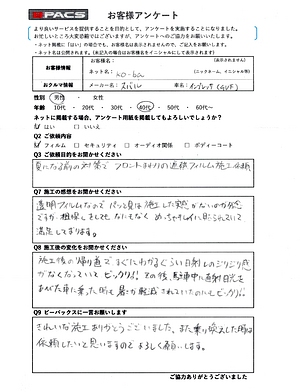 PACS お客様アンケート
より良いサービスを提供することを目的として、アンケートを実施することになりました。
お忙しいところ大変恐縮ではございますが、アンケートへのご協力をお願いいたします。
・ネット掲載に「はい」の場合でも、お客様名は表示されませんので、ご記入をお願いします。
お客様情報
お客様名：
（表示されません）
ネット名： ko-ba
（ニックネーム、イニシャル等）
おクルマ情報
メーカー名： スバル
車名： インプレッサ（GVF）
性別 男性 ・ 女性
年齢 10代 ・ 20代 ・ 30代 ・ 40代 ・ 50代 ・ 60代～
ネットに掲載する場合、アンケート用紙を掲載してもよろしいでしょうか？
はい □いいえ
Q2 ご依頼内容
フィルム □セキュリティ □オーディオ関係 □ボディーコート
Q3 ご依頼目的をお聞かせください
夏になる前の対策でフロントまわりの透明フィルム施工依頼
Q7 施工の感想をお聞かせください
透明フィルムなので パッと見は施工した実感がないのが
ですが 粗探ししても なにもなく めっちゃキレイに貼られていて
満足しております。
Q8 施工後の変化をお聞かせください
施工後の帰り道で すぐにわかるくらい日射しのジリジリ感
がなくなっていて ビックリ!! その後、駐車中に直射日光を
あびた車に乗った時も 暑さが軽減されていたのにもビックリ!!
Q9 ピーパックスに一言お願いします
きれいな施工ありがとうございました。また乗り換えました時は
依頼したいと思いますので よろしくお願いします。
ご協力ありがとうございました